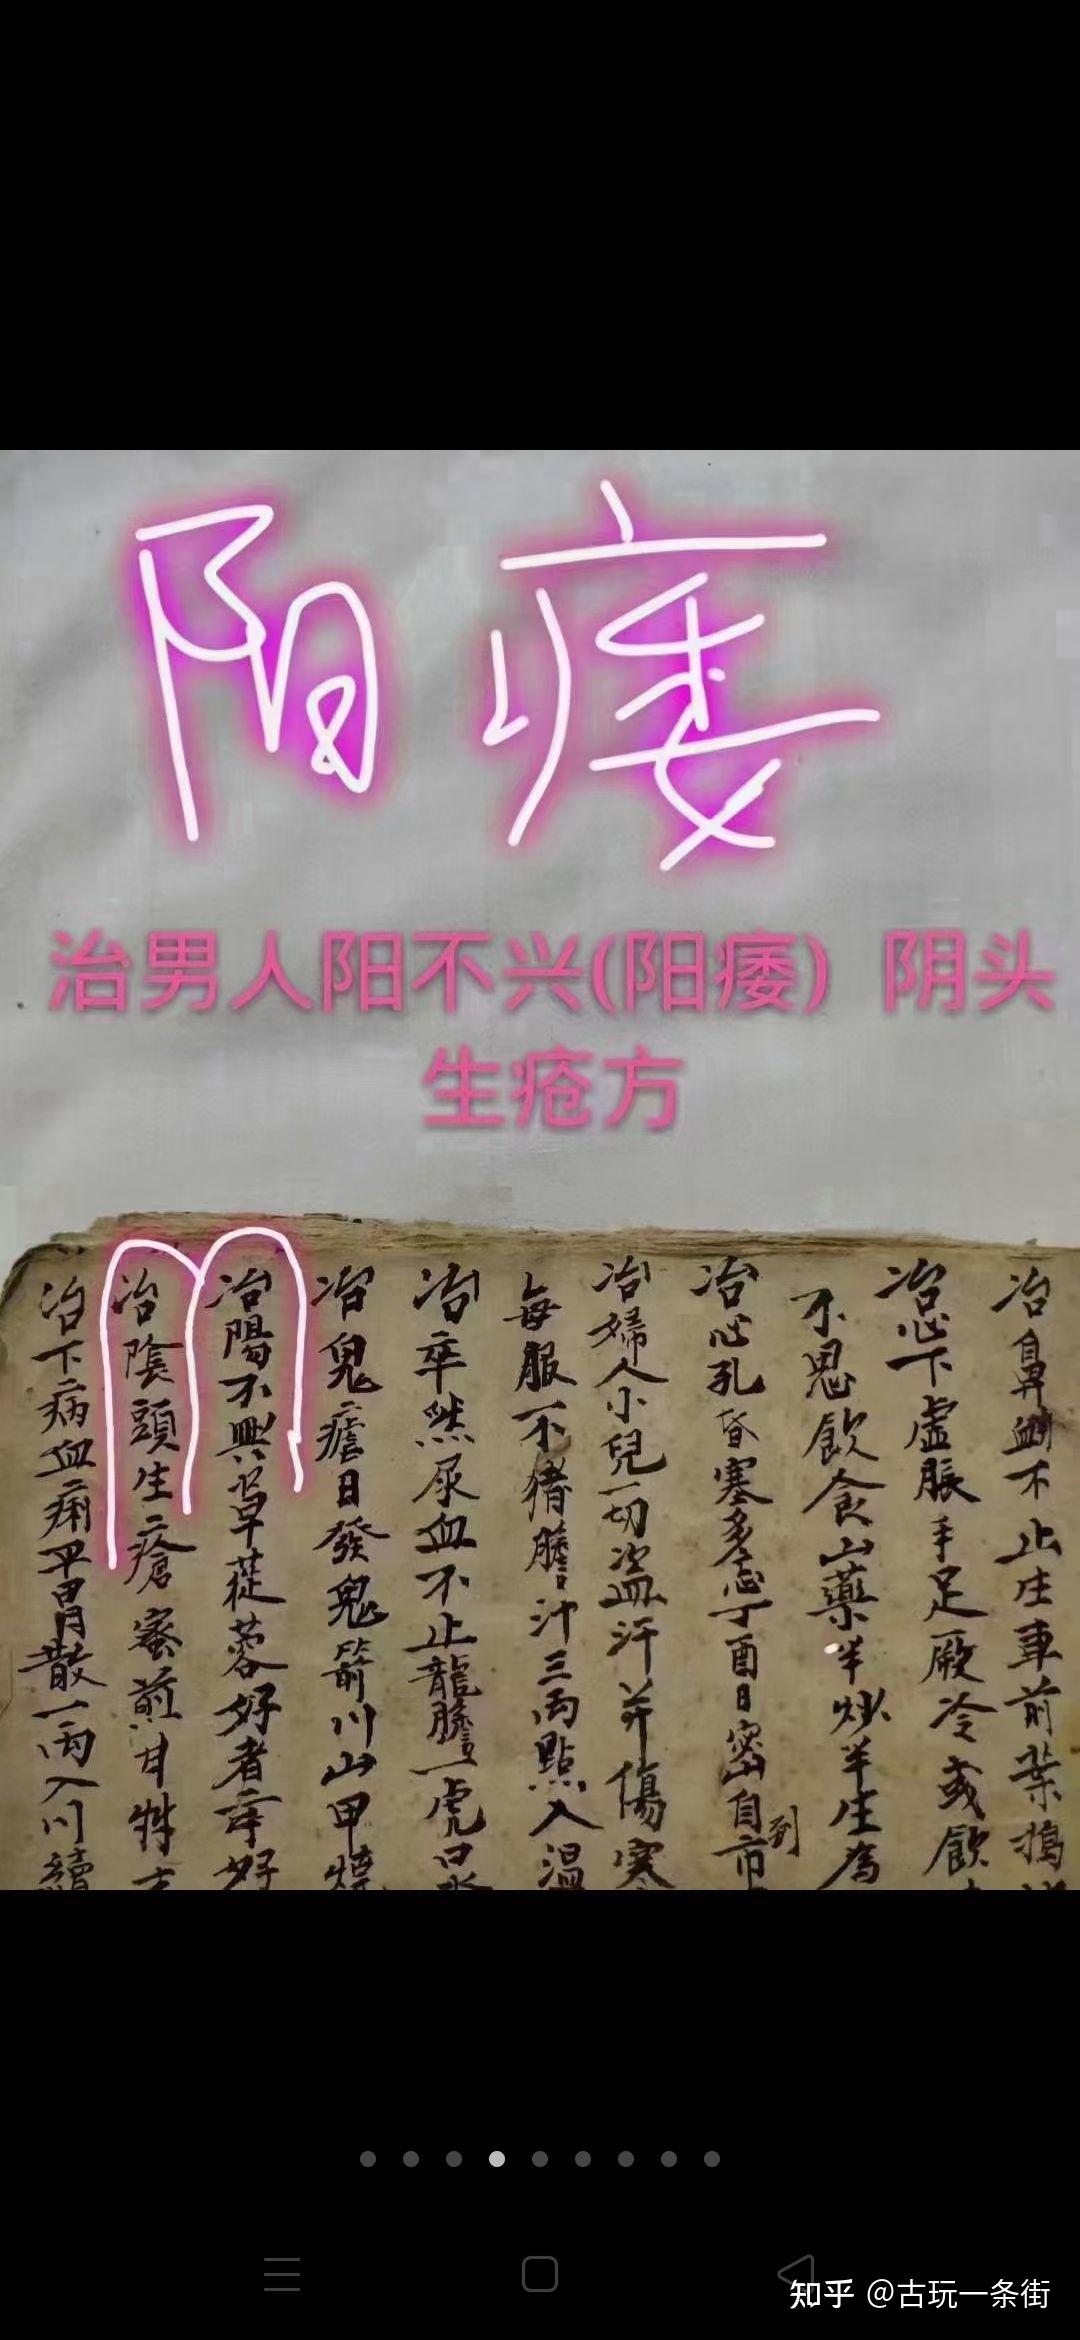 阳痿
治男人阳不兴(阳痿) 阴头
生疮方
治鼻衄不止庄車前葉搗
治心下虚脹手足厥冷或飲
不思飲食山藥半炒半生為
治心孔昏塞多忘丁酉日密自市
到
治婦人小兒一切盗汗并傷寒
每服一不猪膽汁三両點入温
治卒然尿血不止龍膽一虎口水
治鬼瘧日發鬼箭川山甲燒
治陽不興草蓯蓉好者幸好
治陰頭生瘡蜜煎甘
治下病血痢平胃散一両入川續
知乎 @古玩一条街